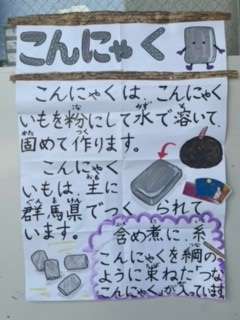 こんにゃく
こんにゃくは、こんにゃく
いもを粉にして水で溶いて、
固めて作ります。
こんにゃく
いもは、主に
群馬県でつくられて
います。
含め煮に、糸
こんにゃくを綱の
ように束ねた"つな
こんにゃく"が入っています